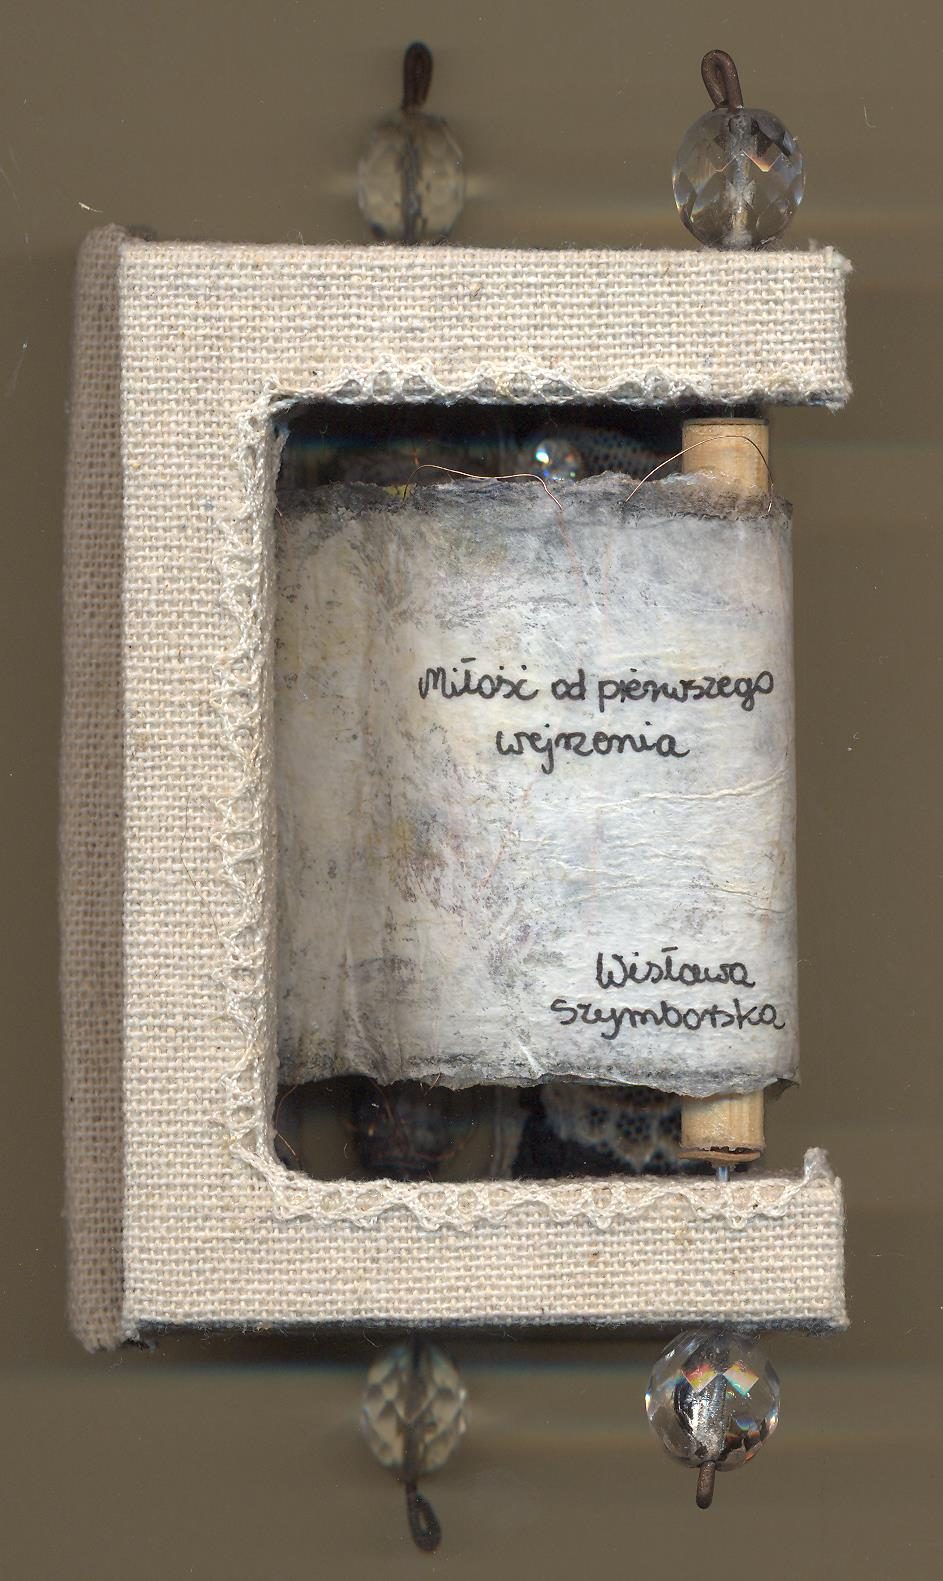 Miłość od pierwszego
wejrzenia
Wisława
Szymborska